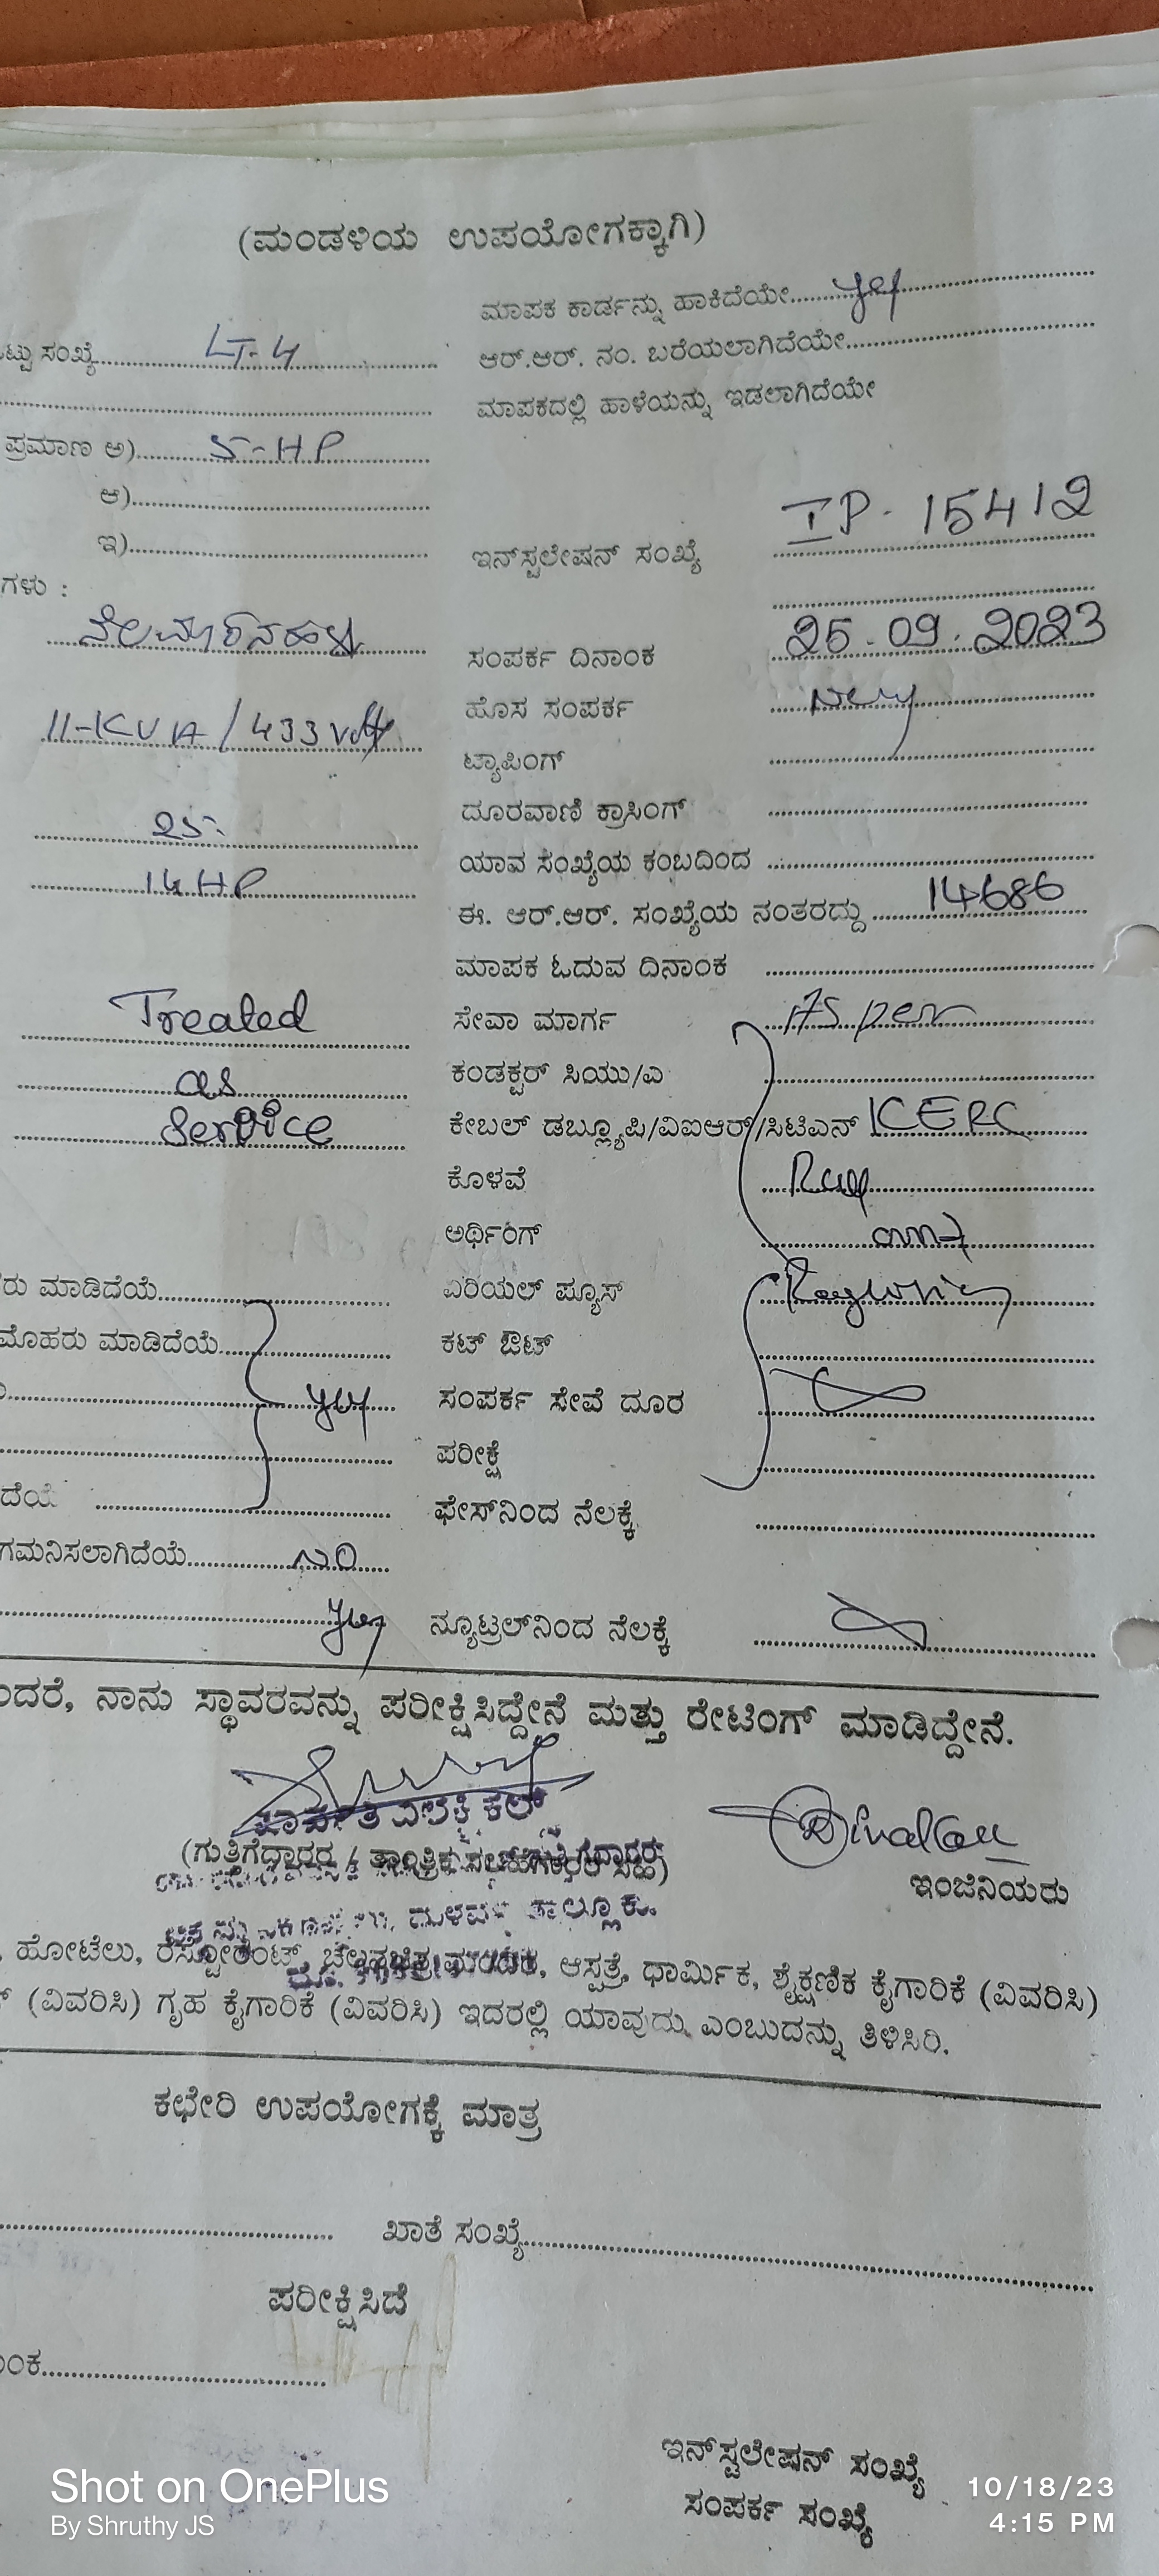 (ಮಂಡಳಿಯ ಉಪಯೋಗಕ್ಕಾಗಿ)
ಮಾಪಕ ಕಾರ್ಡನ್ನು ಹಾಕಿದೆಯೇ.......... yes
ಟ್ಟು ಸಂಖ್ಯೆ.......... LT-4
ಆರ್.ಆರ್. ನಂ. ಬರೆಯಲಾಗಿದೆಯೇ..........
ಮಾಪಕದಲ್ಲಿ ಹಾಳೆಯನ್ನು ಇಡಲಾಗಿದೆಯೇ
ಪ್ರಮಾಣ ಅ).......... 5-HP
ಆ)..........
ಇ)..........
ಇನ್‌ಸ್ಟಲೇಷನ್ ಸಂಖ್ಯೆ IP- 15412
ಗಳು :
ಸಂಪರ್ಕ ದಿನಾಂಕ 25.09.2023
ಹೊಸ ಸಂಪರ್ಕ
11-KVA/433 volt
ಟ್ಯಾಪಿಂಗ್
ದೂರವಾಣಿ ಕ್ರಾಸಿಂಗ್
25
ಯಾವ ಸಂಖ್ಯೆಯ ಕಂಬದಿಂದ
14 HP
ಈ. ಆರ್.ಆರ್. ಸಂಖ್ಯೆಯ ನಂತರದ್ದು.......... 14686
ಮಾಪಕ ಓದುವ ದಿನಾಂಕ
Treated ಸೇವಾ ಮಾರ್ಗ As per
as ಕಂಡಕ್ಟರ್ ಸಿಯು/ಎ
Service ಕೇಬಲ್ ಡಬ್ಲ್ಯೂಪಿ/ವಿಐಆರ್/ಸಿಟಿಎನ್ KERC
ಕೊಳವೆ
ಅರ್ಥಿಂಗ್ and
ರು ಮಾಡಿದೆಯೆ.......... ಏರಿಯಲ್ ಪ್ಯೂಸ್
ಮೊಹರು ಮಾಡಿದೆಯೆ.......... ಕಟ್ ಔಟ್
yes ಸಂಪರ್ಕ ಸೇವೆ ದೂರ
ಪರೀಕ್ಷೆ
ದೆಯೆ .......... ಫೇಸ್‌ನಿಂದ ನೆಲಕ್ಕೆ
ಗಮನಿಸಲಾಗಿದೆಯೆ.......... NO
yes ನ್ಯೂಟ್ರಲ್‌ನಿಂದ ನೆಲಕ್ಕೆ
ಂದರೆ, ನಾನು ಸ್ಥಾವರವನ್ನು ಪರೀಕ್ಷಿಸಿದ್ದೇನೆ ಮತ್ತು ರೇಟಿಂಗ್ ಮಾಡಿದ್ದೇನೆ.
(ಗುತ್ತಿಗೆದ್ದಾರರ / ತಾಂತ್ರಿಕ ಸಹಿ)
ಇಂಜಿನಿಯರು
ಹೋಟೆಲು, ರೆಸ್ಟೋರೆಂಟ್, ಚಲನಚಿತ್ರ ಮಂದಿರ, ಆಸ್ಪತ್ರೆ, ಧಾರ್ಮಿಕ, ಶೈಕ್ಷಣಿಕ ಕೈಗಾರಿಕೆ (ವಿವರಿಸಿ)
(ವಿವರಿಸಿ) ಗೃಹ ಕೈಗಾರಿಕೆ (ವಿವರಿಸಿ) ಇದರಲ್ಲಿ ಯಾವುದು ಎಂಬುದನ್ನು ತಿಳಿಸಿರಿ.
ಕಛೇರಿ ಉಪಯೋಗಕ್ಕೆ ಮಾತ್ರ
ಖಾತೆ ಸಂಖ್ಯೆ..........
ಪರೀಕ್ಷಿಸಿದೆ
ಂಕ..........
ಇನ್‌ಸ್ಟಲೇಷನ್ ಸಂಖ್ಯೆ
ಸಂಪರ್ಕ ಸಂಖ್ಯೆ
Shot on OnePlus
By Shruthy JS
10/18/23
4:15 PM